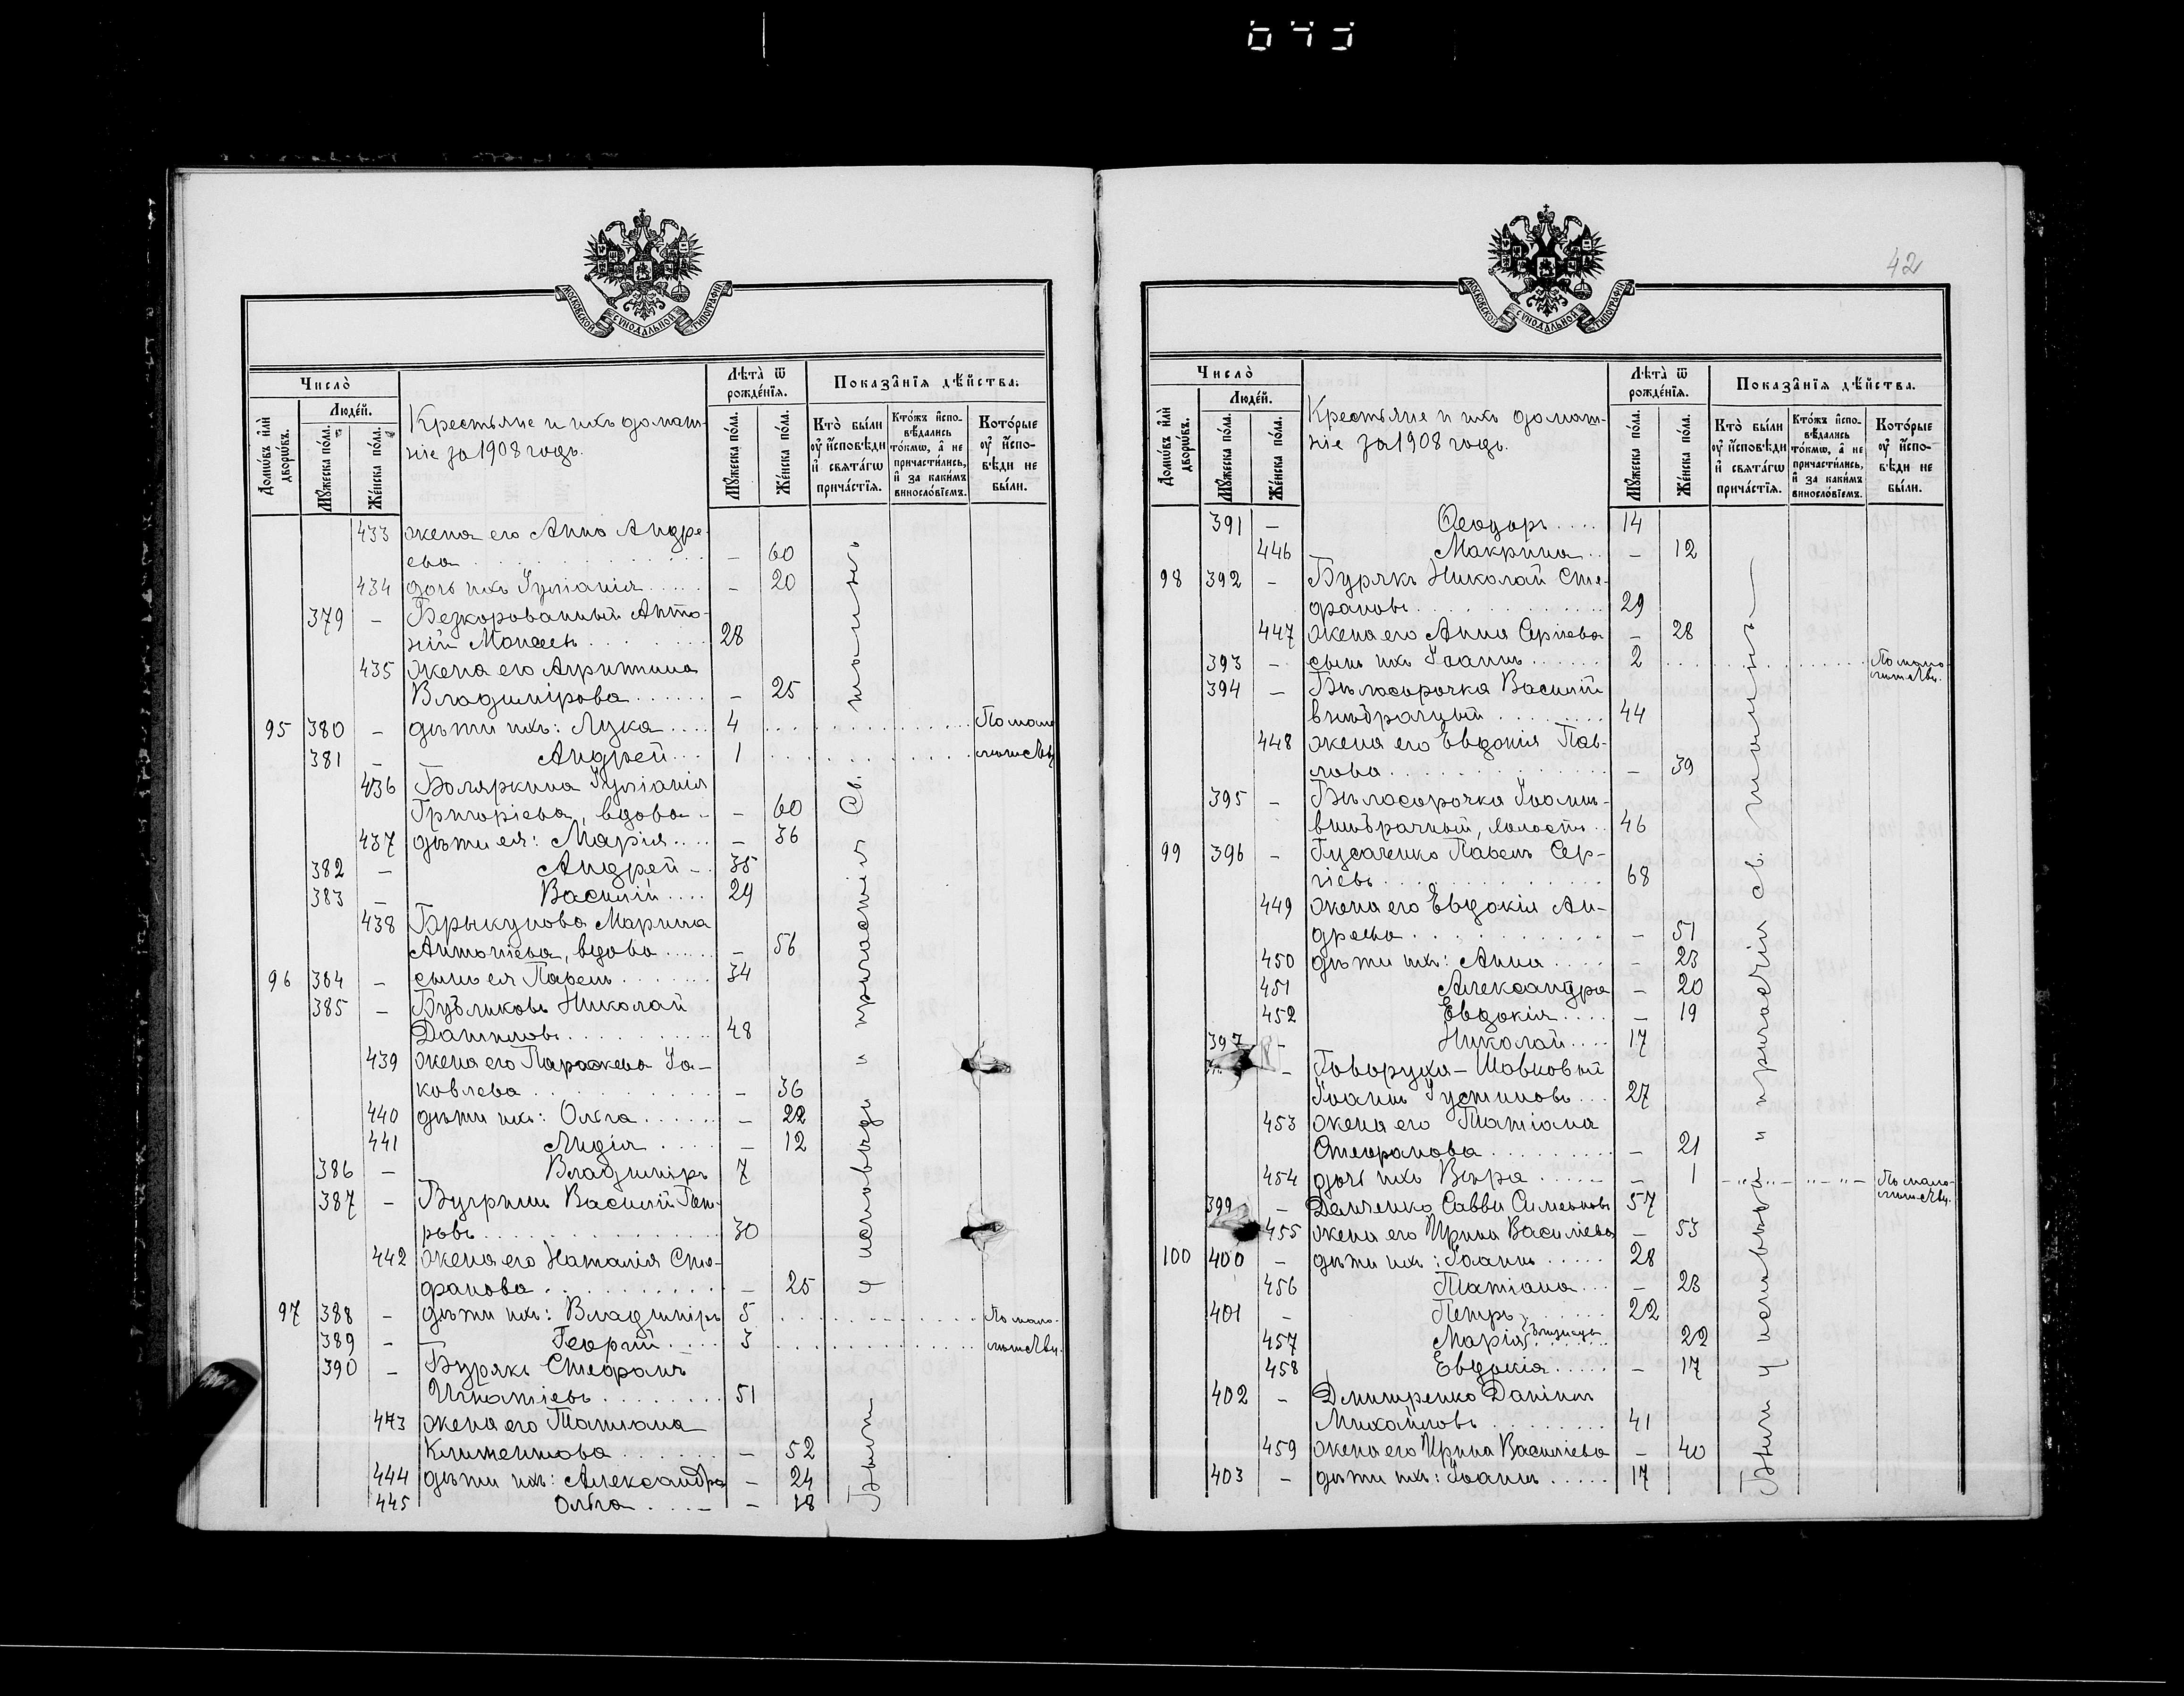 42
МОСКОВСКОЙ СѴНОДАЛЬНОЙ ТИПОГРАФІИ
Число̀
Домѡ́въ и҆лѝ дворѡ́въ.
Люде́й.
Мꙋ́жеска по́ла.
Же́нска по́ла.
Крестьяне и ихъ домаш-
ніе за 1908 годъ.
Лѣ́та ѿ рожде́нїѧ.
Мꙋ́жеска по́ла.
Же́нска по́ла.
Показа̑нїѧ дѣ́йства:
Кто̀ бы́ли оу҆ и҆́сповѣди и҆ свѧта́гѡ прича́стїѧ.
Кто́жъ и҆спо- вѣ́дались то́кмѡ, а҆ не причасти́лись, и҆ за каки́мъ виносло́вїемъ.
Кото́рые оу҆ и҆́спо- вѣди не бы́ли.
433 жена его Анна Андре-
ева - 60
434 дочь ихъ Іуліанія - 20
379 - Безкорованный Анто-
ній Моисеевъ 28
435 жена его Агриппина
Владимірова - 25
95 380 - дѣти ихъ: Лука 4 По мало
381 - Андрей 1 лѣтству
436 Боляркина Іуліанія
Григоріева, вдова - 60
437 дѣти ея: Марія - 36
382 - Андрей 35
383 - Василій 29
438 Брыкунова Марина
Антоніева, вдова - 56
96 384 - сынъ ея Павелъ 34
385 - Бубликовъ Николай
Даниловъ 48
439 жена его Параскева Іа-
ковлева - 36
440 дѣти ихъ: Ольга - 22
441 Лидія - 12
386 - Владиміръ 7
387 - Вугринъ Василій Пет-
ровъ 30
442 жена его Наталія Сте-
фанова - 25
97 388 - дѣти ихъ: Владиміръ 5 По мало-
389 - Георгій 3 лѣтству.
390 - Бурякъ Стефанъ
Игнатіевъ 51
443 жена его Татіана
Климентова - 52
444 дѣти ихъ: Александра - 24
445 Ольга - 18
Были у исповѣди и причастія Св. таинъ
МОСКОВСКОЙ СѴНОДАЛЬНОЙ ТИПОГРАФІИ
Число̀
Домѡ́въ и҆лѝ дворѡ́въ.
Люде́й.
Мꙋ́жеска по́ла.
Же́нска по́ла.
Крестьяне и ихъ домаш-
ніе за 1908 годъ.
Лѣ́та ѿ рожде́нїѧ.
Мꙋ́жеска по́ла.
Же́нска по́ла.
Показа̑нїѧ дѣ́йства.
Кто̀ бы́ли оу҆ и҆́сповѣди и҆ свѧта́гѡ прича́стїѧ.
Кто́жъ и҆спо- вѣ́дались то́кмѡ, а҆ не причасти́лись, и҆ за каки́мъ виносло́вїемъ.
Кото́рые оу҆ и҆́спо- вѣди не бы́ли.
391 - Ѳеодоръ 14
446 Макрина - 12
98 392 - Бурякъ Николай Сте-
фановъ 29
447 жена его Анна Сергіева - 28
393 - сынъ ихъ Іоаннъ 2 По мало-
лѣтству.
394 - Бѣлосорочка Василій
внѣбрачный 44
448 жена его Евдокія Пав-
лова - 39
395 - Бѣлосорочка Іоаннъ
внѣбрачный, холостъ 46
99 396 - Гусаченко Павелъ Сер-
гіевъ 68
449 жена его Евдокія Ан-
дреева - 51
450 дѣти ихъ: Анна - 23
451 Александра - 20
452 Евдокія - 19
397 - Николай 17
- Говоруха-Шовковый
Іоаннъ Іустиновъ 27
453 жена его Татіана
Стефанова - 21
454 дочь ихъ Вѣра - 1 По мало-
лѣтству.
399 - Демченко Савва Симеоновъ 57
455 жена его Ирина Василіева - 53
100 400 - дѣти ихъ: Іоаннъ 28
456 Татіана - 23
401 - Петръ 22
457 Марія близнецы 22
458 Евдокія - 17
402 - Дмитренко Даніилъ
Михайловъ 41
459 жена его Ирина Василіева - 40
403 - дѣти ихъ: Іоаннъ 17
Были у исповѣди и причастія св. таинъ